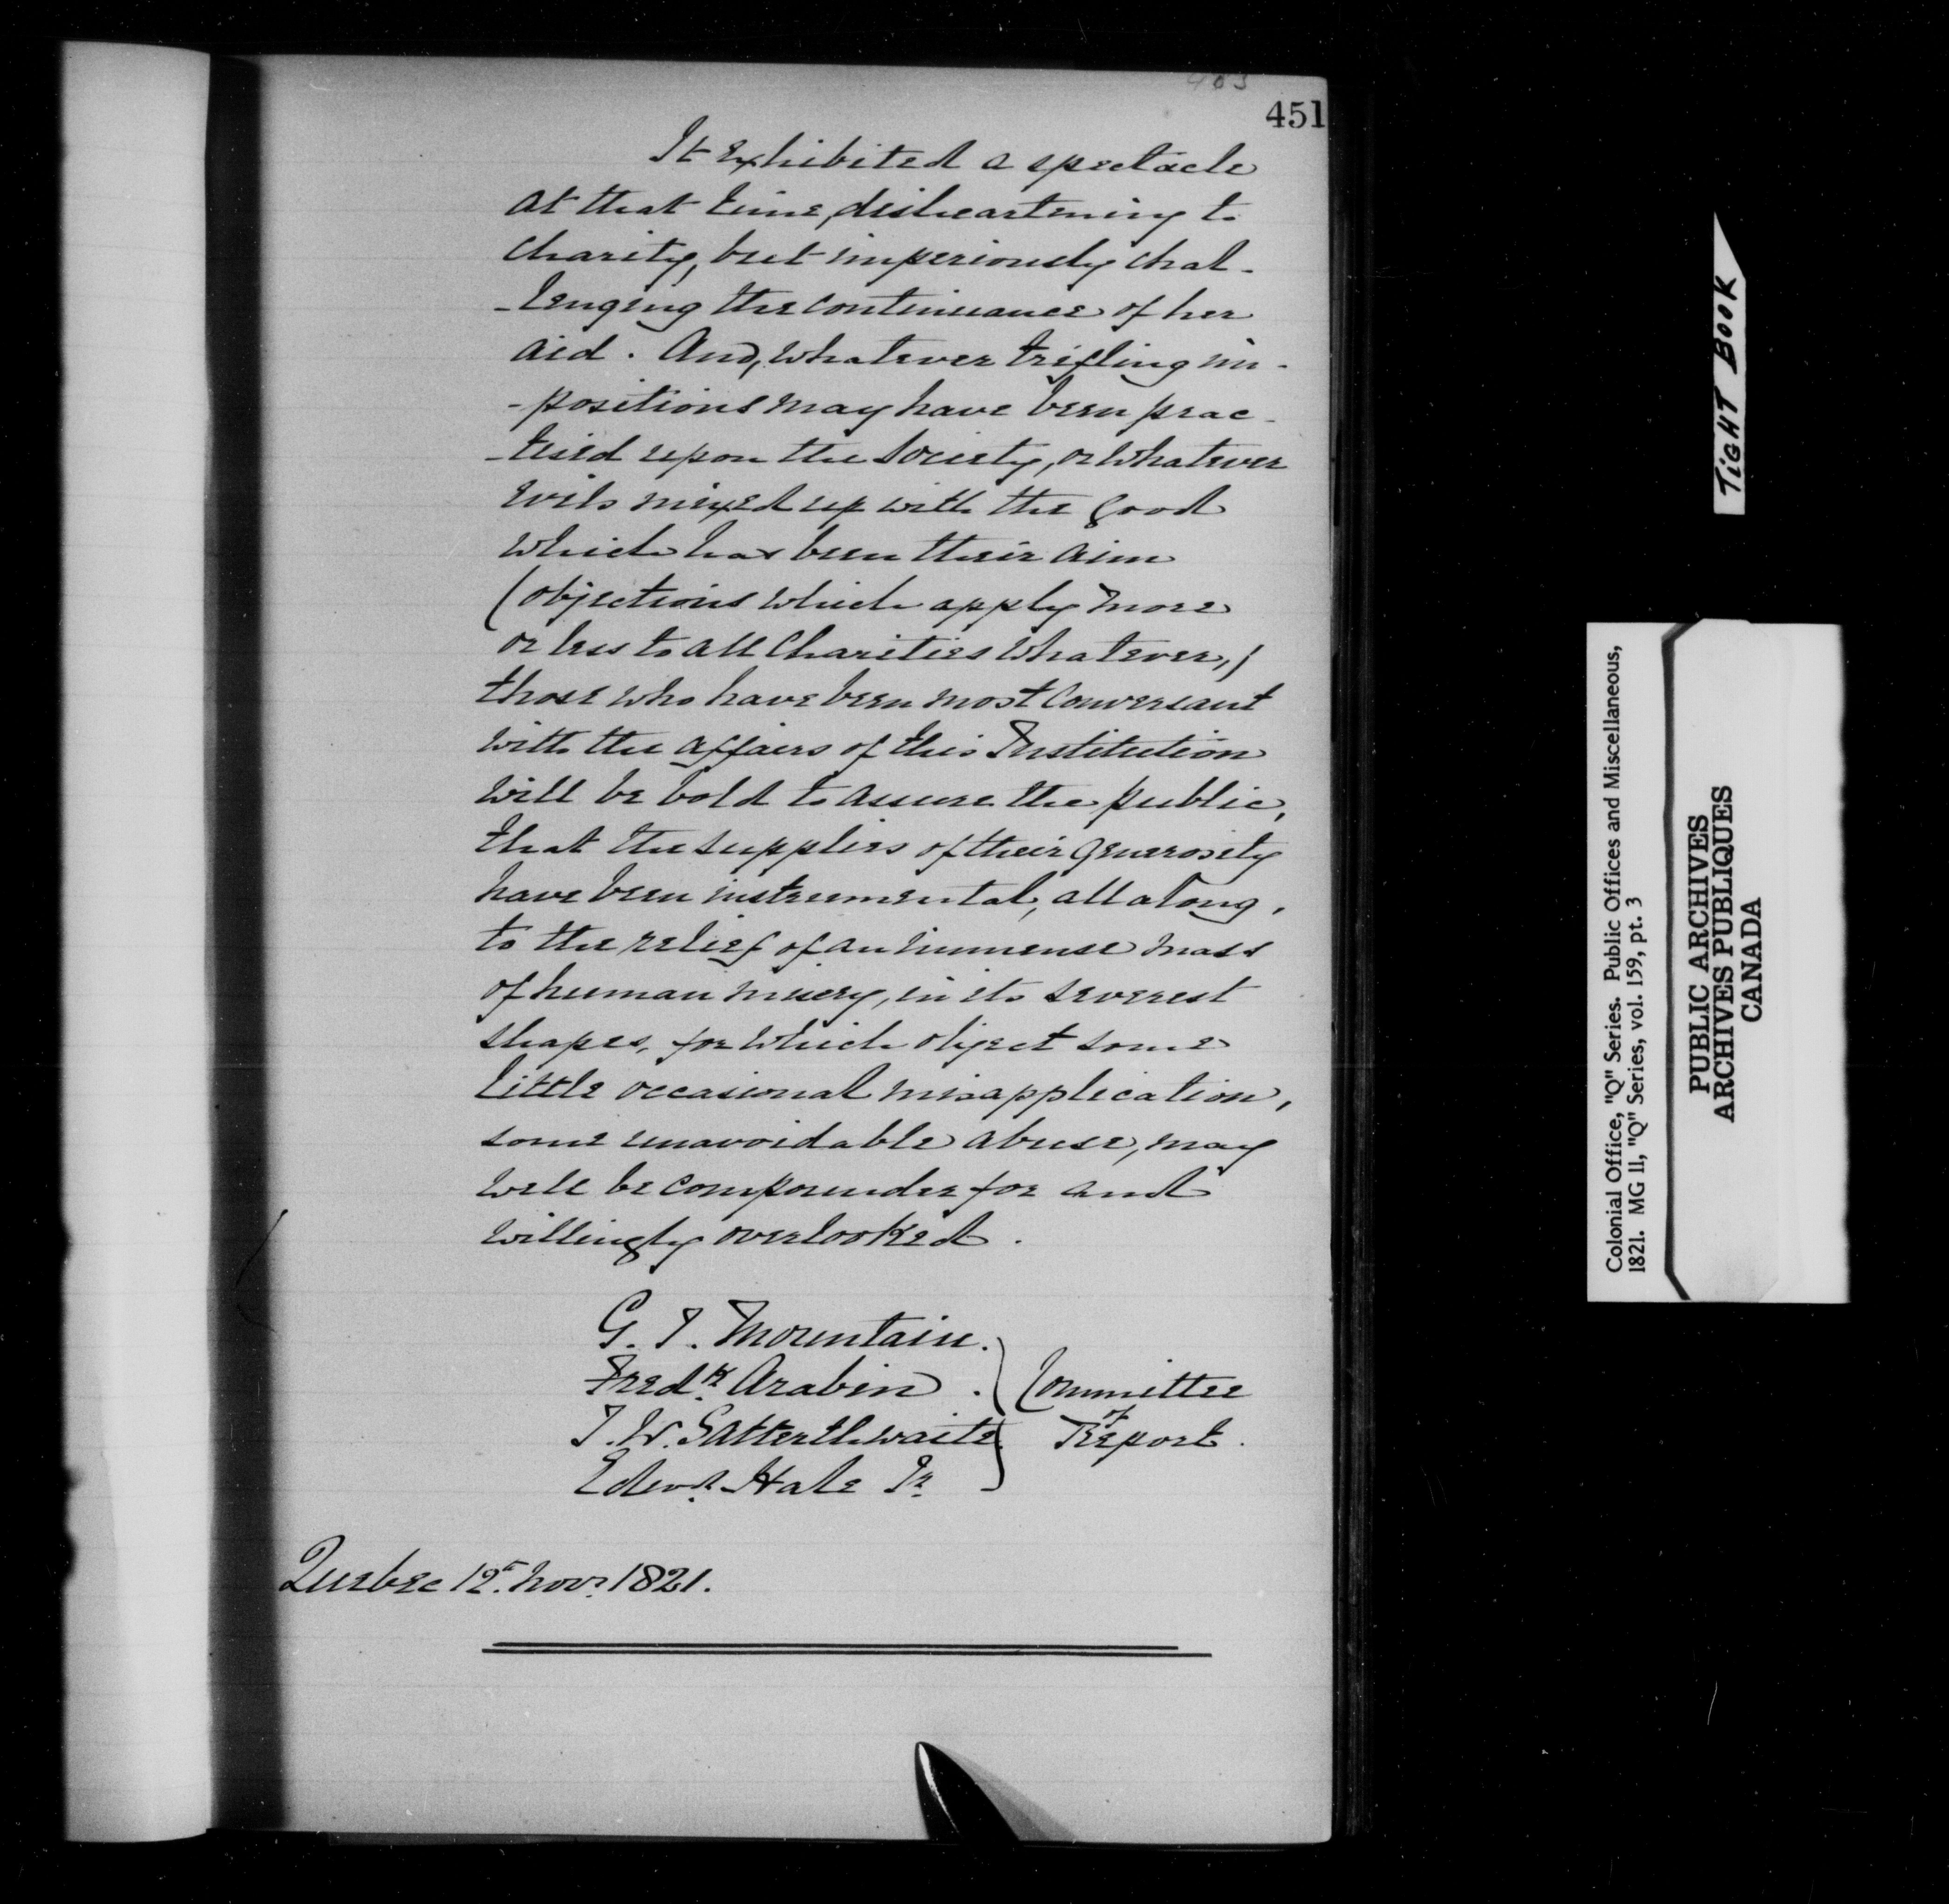 403
451
It exhibited a spectacle
at that time, disheartening to
charity, but imperiously chal-
-lenging the continuance of her
aid. And, whatever trifling im-
-positions may have been prac-
-tised upon the Society, or whatever
evils mixed up with the good
which has been their aim
(objections which apply more
or less to all Charities whatever,)
those who have been most conversant
with the affairs of this Institution
will be bold to assure the public,
that the supplies of their generosity
have been instrumental, all along,
to the relief of an immense mass
of human misery, in its severest
shapes, for which object some
little occasional misapplication,
some unavoidable abuse, may
well be compounder for and
willingly overlooked.
G. J. Mountain.
Fredk. Arabin.
Committee
J. W. Satterthwaite
of
Report.
Edwd. Hale Jr
Quebec 12th. Novr. 1821.
TIGHT BOOK
Colonial Office, "Q" Series. Public Offices and Miscellaneous,
1821. MG 11, "Q" Series, vol. 159, pt. 3
PUBLIC ARCHIVES
ARCHIVES PUBLIQUES
CANADA